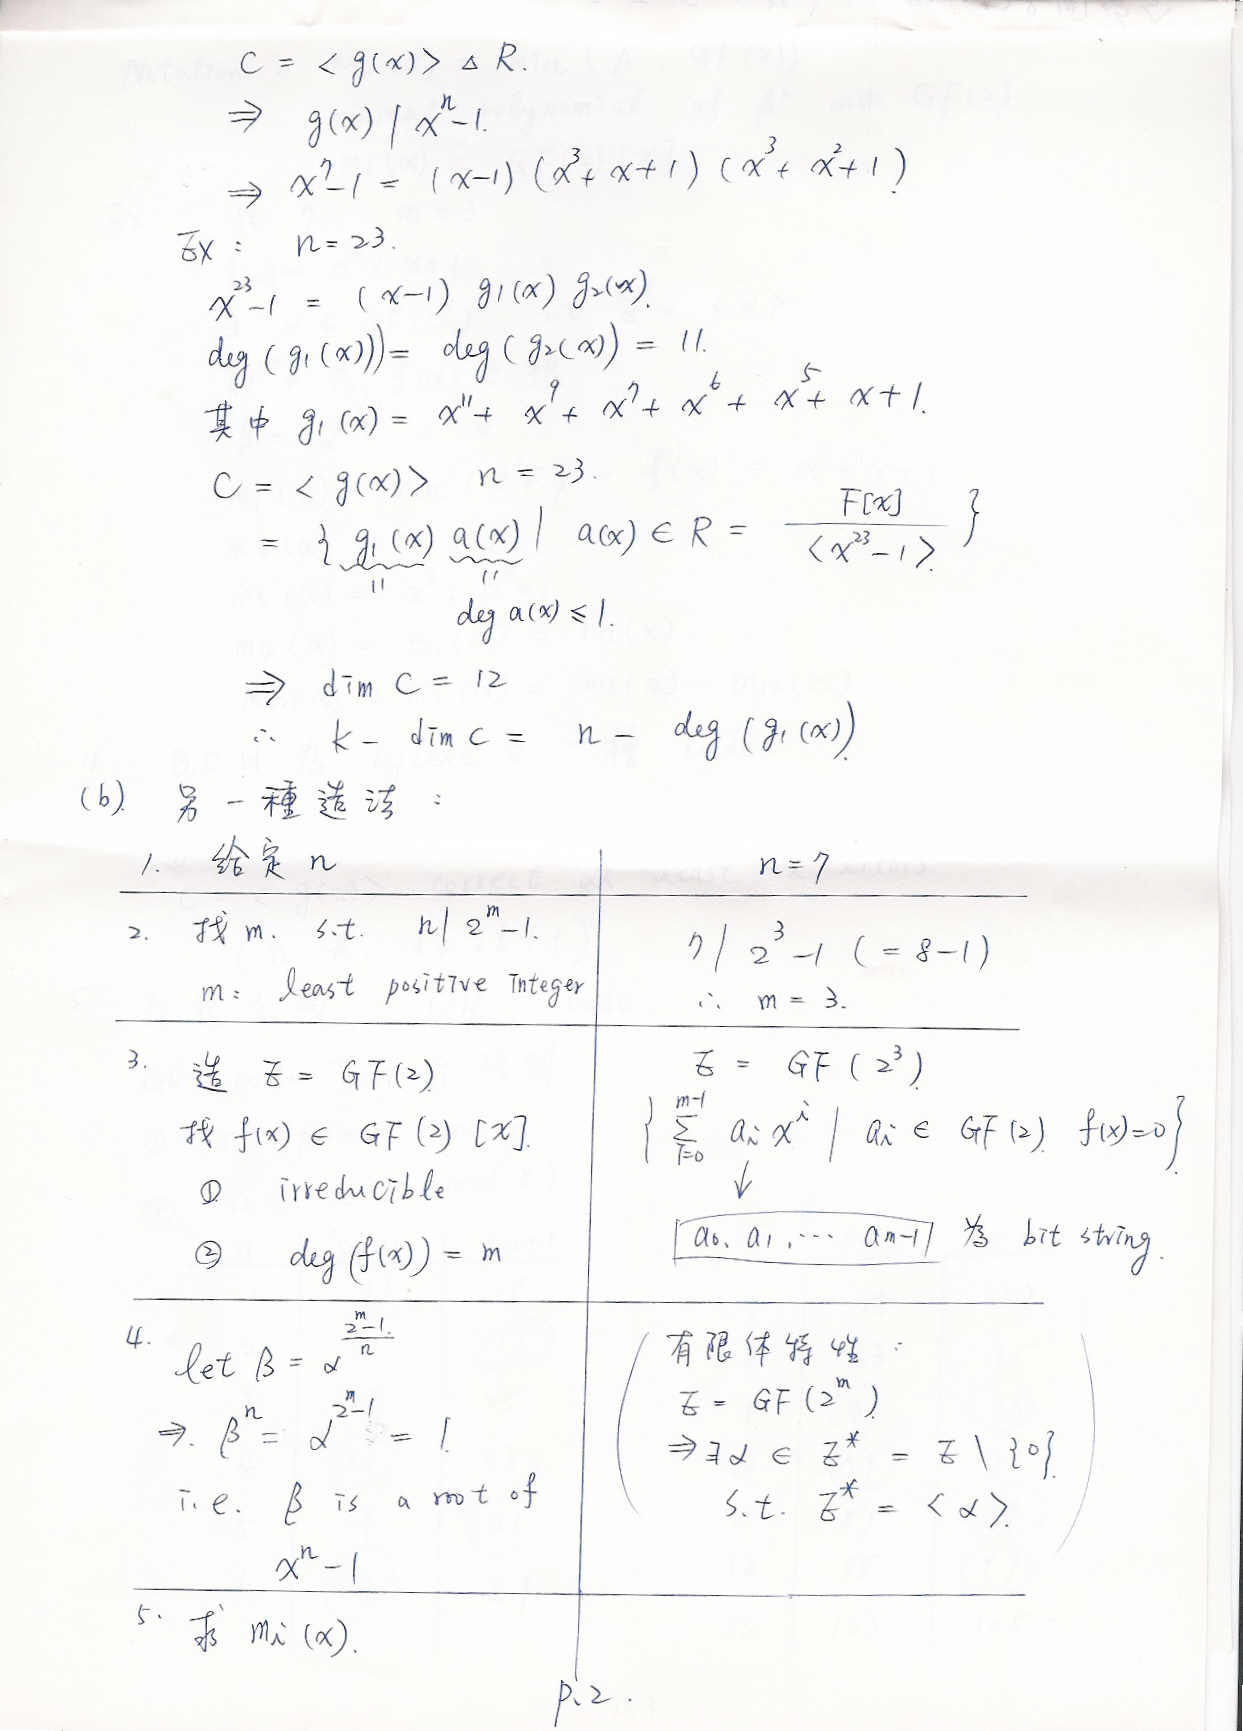 C = <g(x)> △ R.
⇒ g(x) / xⁿ-1.
⇒ x⁷-1 = (x-1) (x³+ x+1) (x³+ x²+1)
Ex : n=23.
x²³-1 = (x-1) g₁(x) g₂(x).
deg (g₁(x)))= deg (g₂(x)) = 11.
其中 g₁(x) = x¹¹+ x⁹+ x⁷+ x⁶+ x⁵+ x+1.
C = <g(x)> n=23.
= { g₁(x) a(x) | a(x) ∈ R = F[x] / <x²³-1> }
" "
deg a(x) ≤ 1.
⇒ dim C = 12
∴ k - dim C = n - deg (g₁(x))
(b). 另一種造法 :
1. 給定 n
n=7
2. 找 m. s.t. n| 2ᵐ-1.
m: least positive Integer
7/ 2³-1 (=8-1)
∴ m = 3.
3. 造 E = GF(2)
找 f(x) ∈ GF(2)[x].
① irreducible
② deg(f(x)) = m
E = GF(2³)
{ Σ_{i=0}^{m-1} aᵢ xⁱ | aᵢ ∈ GF(2) f(x)=0 }.
↓
a₀, a₁, ... aₘ₋₁ 為 bit string.
4. let β = α^{(2ᵐ-1)/n}
⇒. βⁿ= α^{2ᵐ-1} = 1.
i.e. β is a root of
xⁿ-1
有限体特性 :
E = GF(2ᵐ)
⇒∃α ∈ E* = E \ {0}.
s.t. E* = <α>.
5. 求 mᵢ(x).
p.2.